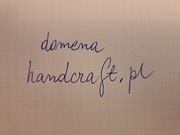 domena
handcraft.pl